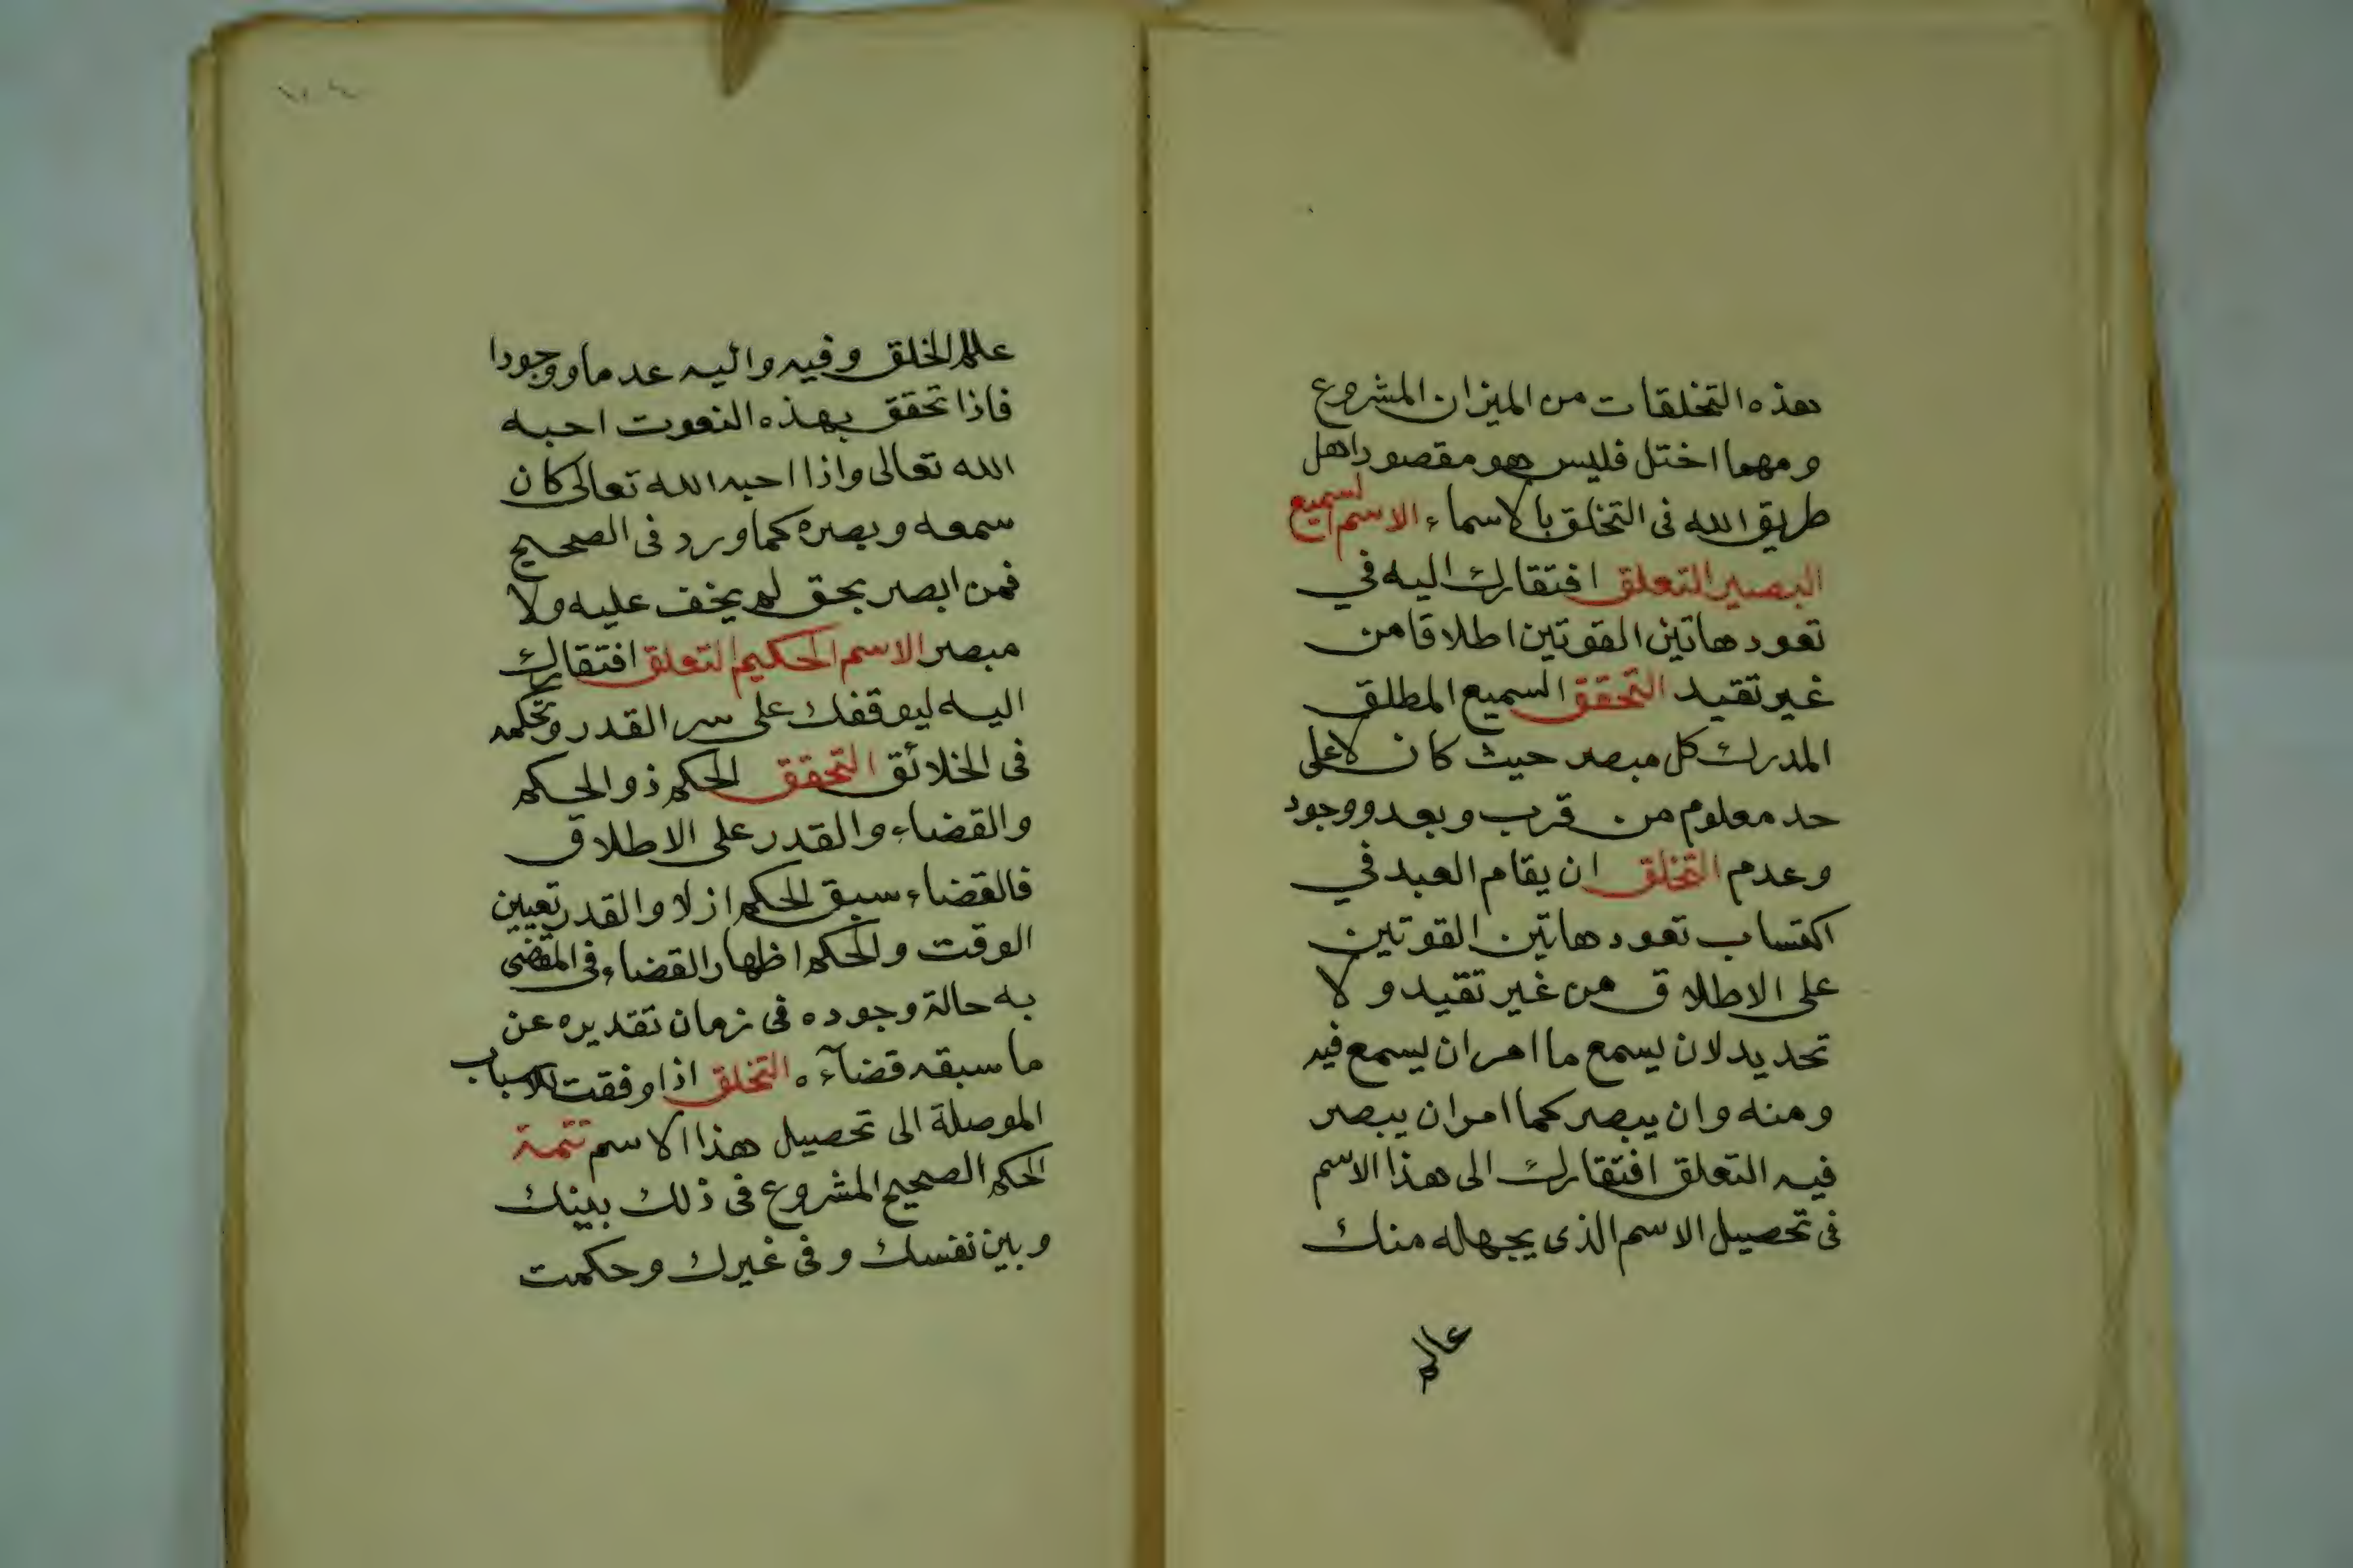 هذه التخلقات من الميزان المشروع
ومهما اختل فليس هو مقصود اهل
طريق الله فى التخلق بالاسماء الاسم السميع
البصير التعلق افتقارك اليه في
تعود هاتين القوتين اطلاقا من
غير تقيد التحقق السميع المطلق
المدرك كل مبصر حيث كان لا على
حد معلوم من قرب وبعد ووجود
وعدم التخلق ان يقام العبد في
اكتساب تعود هاتين القوتين
على الاطلاق من غير تقيد ولا
تحديد لان يسمع ما امر ان يسمع فيه
ومنه وان يبصر كما امر ان يبصر
فيه التعلق افتقارك الى هذا الاسم
فى تحصيل الاسم الذى يجهله منك
عالم
عالم الخلق وفيه واليه عدما ووجودا
فاذا تحقق بهذه النعوت احبه
الله تعالى واذا احبه الله تعالى كان
سمعه وبصره كما ورد فى الصحيح
فمن ابصر بحق لم يخف عليه ولا
مبصر الاسم الحكيم التعلق افتقارك
اليه ليوقفك على سر القدر وتحكمه
فى الخلائق التحقق الحكم ذو الحكم
والقضاء والقدر على الاطلاق
فالقضاء سبق الحكم ازلا والقدر تعيين
الوقت والحكم اظهار القضاء فى المقضى
به حالة وجوده فى زمان تقديره عن
ما سبقه قضآءه التخلق اذا وفقت للاسباب
الموصلة الى تحصيل هذا الاسم تتمة
الحكم الصحيح المشروع فى ذلك بينك
وبين نفسك وفى غيرك وحكمت